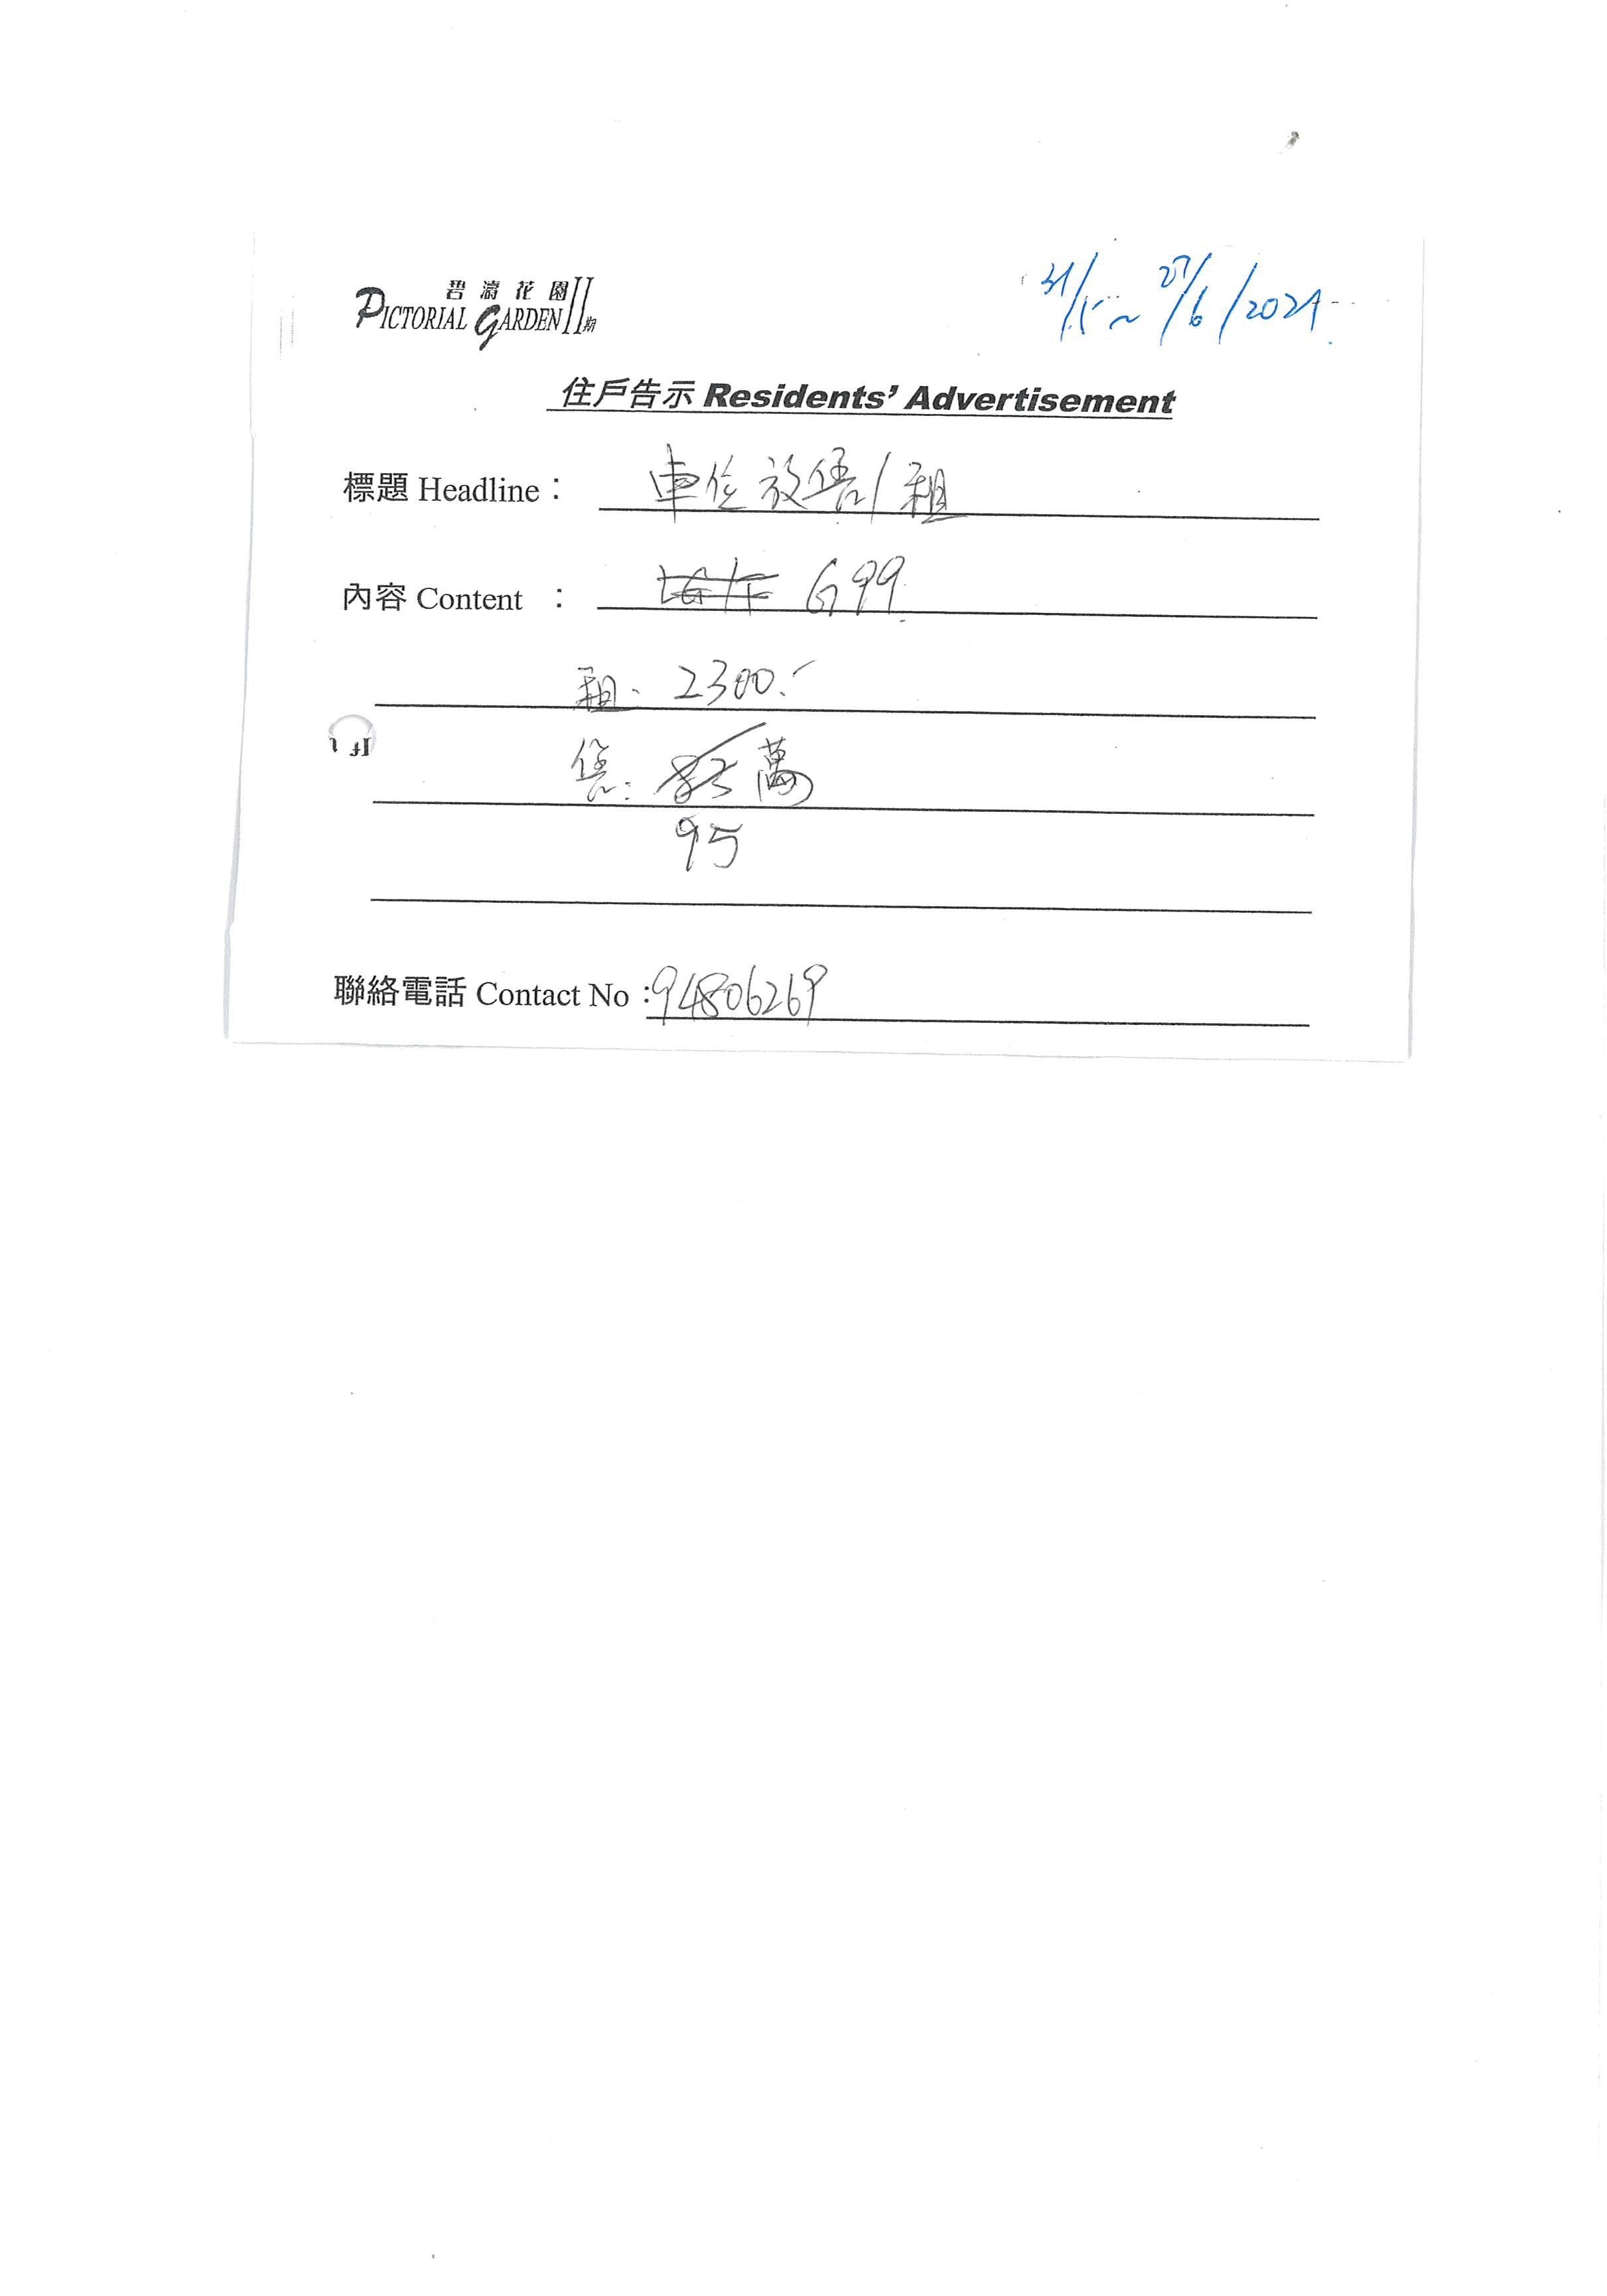 碧濤花園 II期
PICTORIAL GARDEN
31/5 ~ 27/6/2021
住戶告示 Residents' Advertisement
標題 Headline： 車位放售/租
內容 Content ： G99
租: 2300.-
售: 萬
95
聯絡電話 Contact No : 94806269